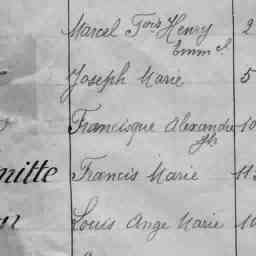 Marcel Fois Henry 2
Emm el
Joseph Marie 5
Francisque Alexandre 10
mitte Francis Marie 113
Louis Ange Marie 10